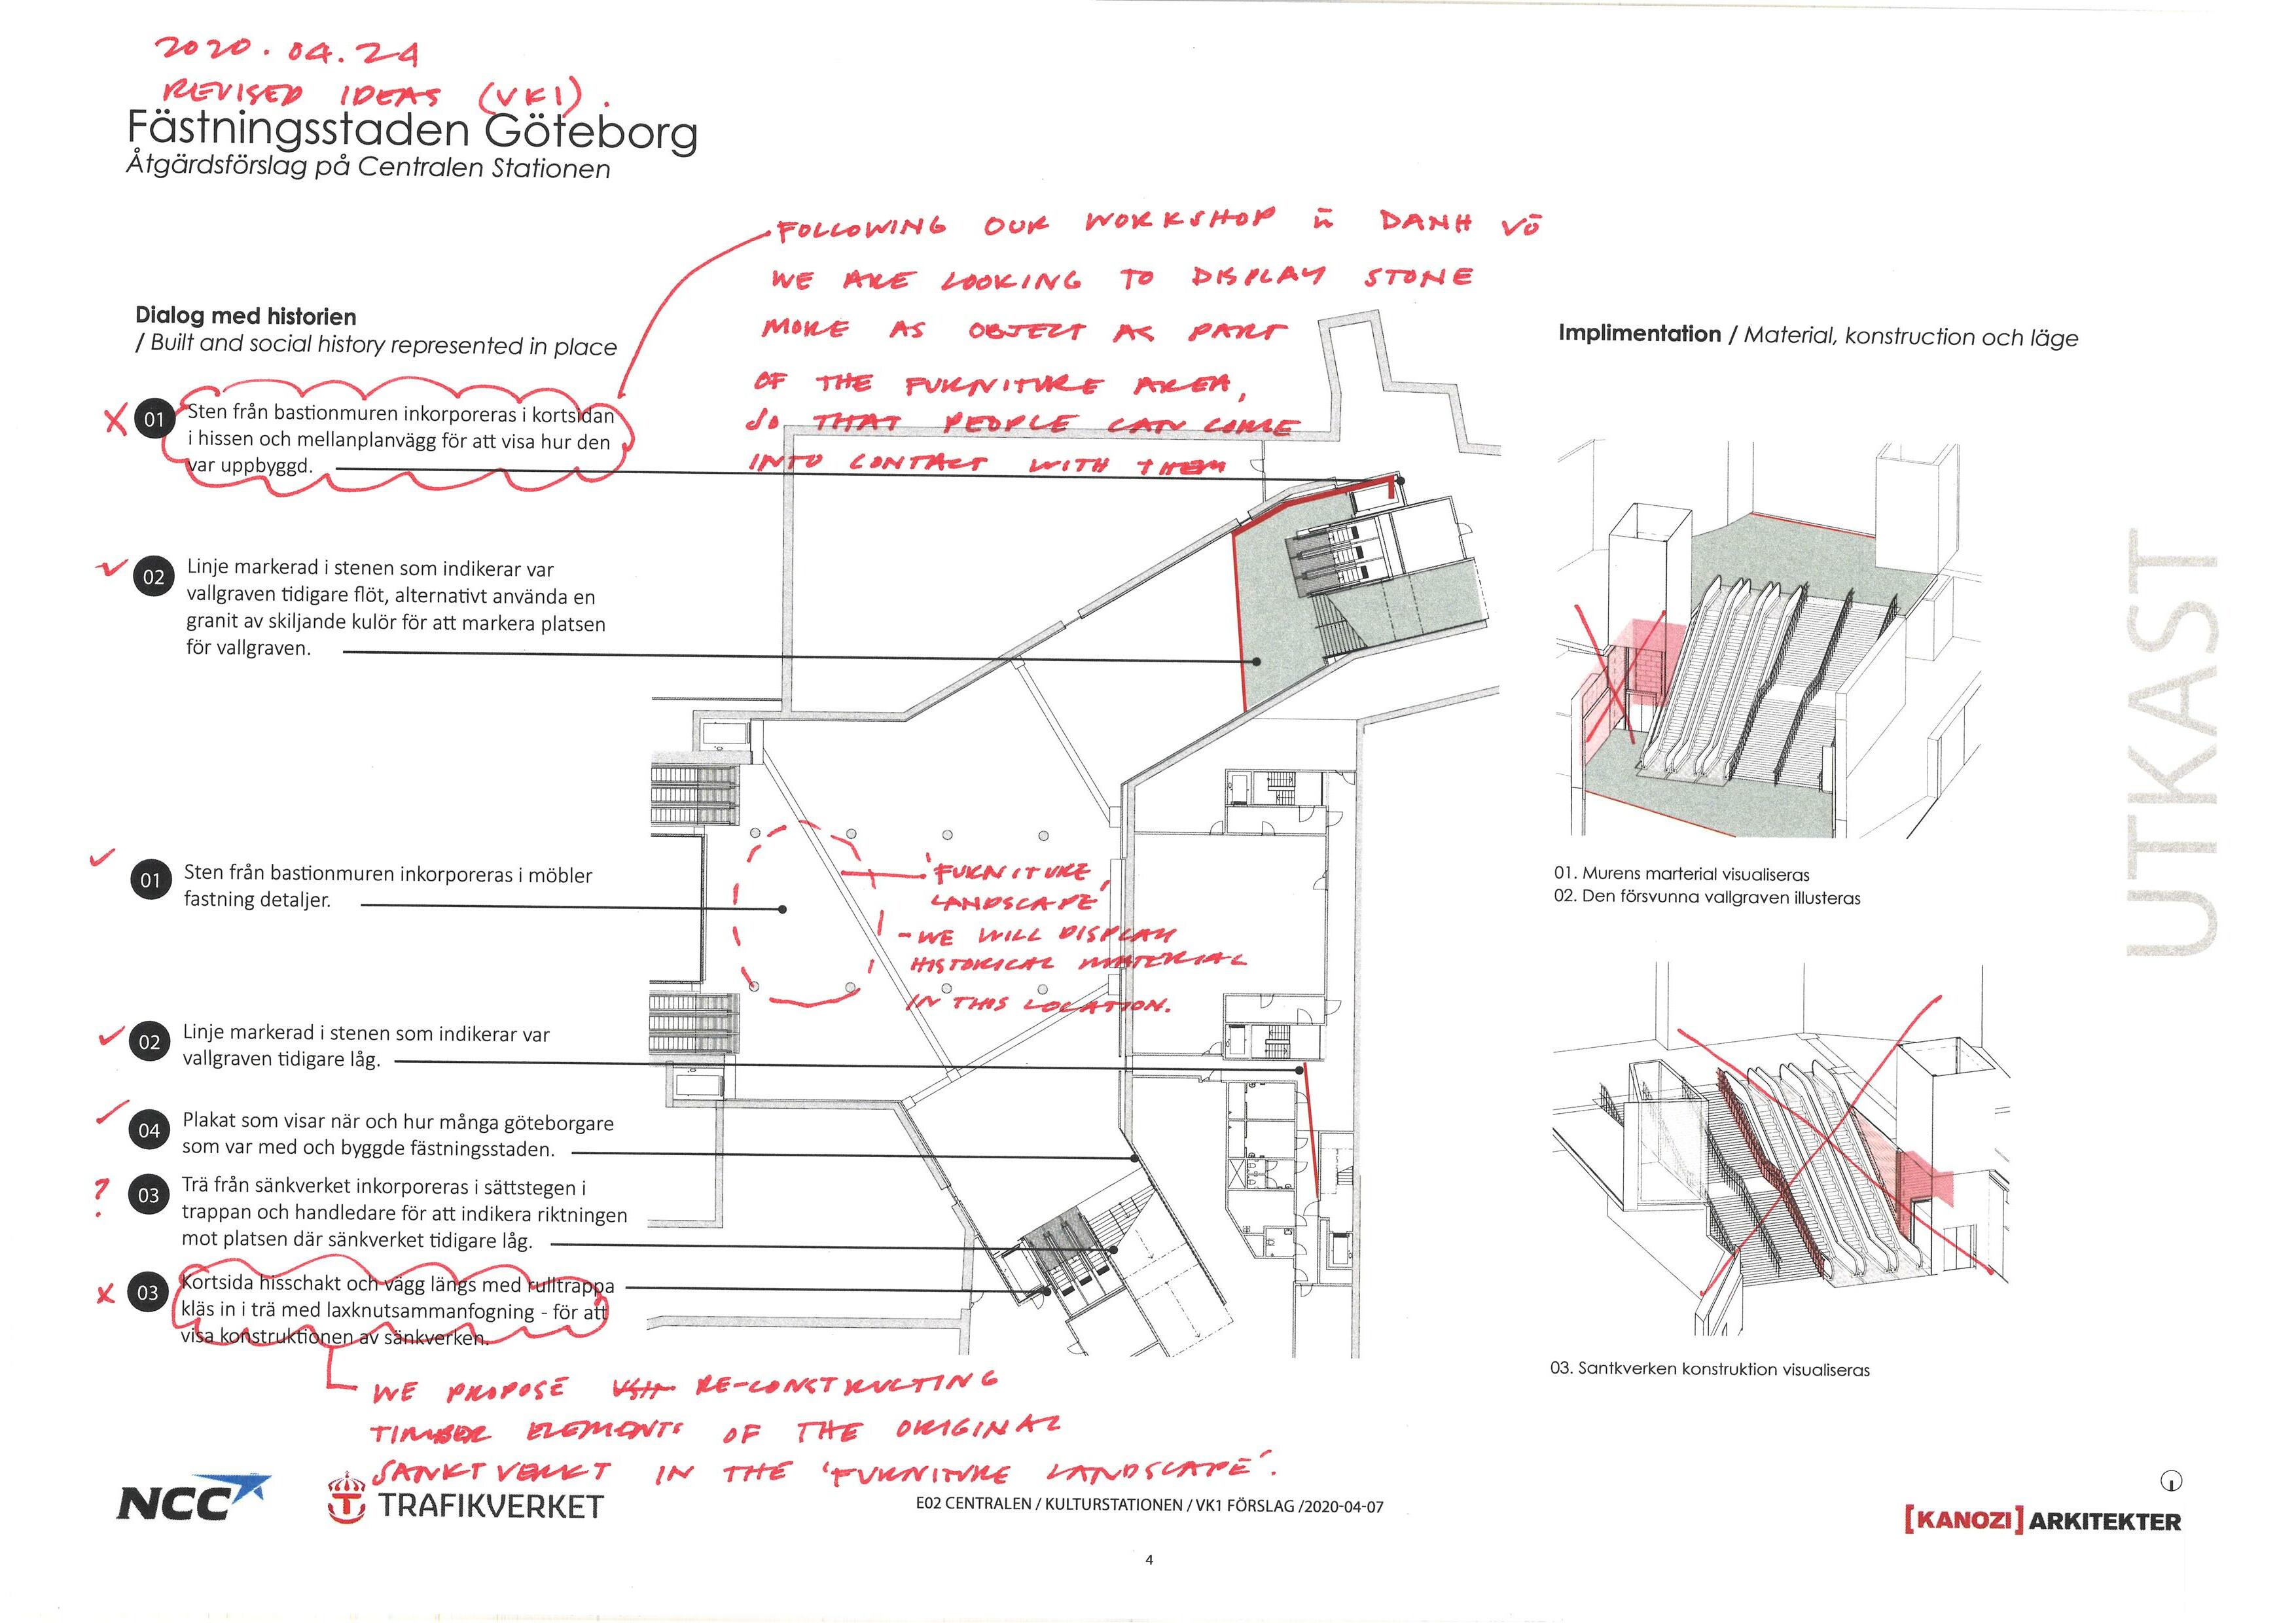 2020.04.24
REVISED IDEAS (VK1).
Fästningsstaden Göteborg
Åtgärdsförslag på Centralen Stationen
FOLLOWING OUR WORKSHOP DANH VŌ
WE ARE LOOKING TO DISPLAY STONE
MORE AS OBJECT AS PART
OF THE FURNITURE AREA,
SO THAT PEOPLE CAN COME
INTO CONTACT WITH THEM
Dialog med historien
/ Built and social history represented in place
X 01 Sten från bastionmuren inkorporeras i kortsidan
i hissen och mellanplanvägg för att visa hur den
var uppbyggd.
02 Linje markerad i stenen som indikerar var
vallgraven tidigare flöt, alternativt använda en
granit av skiljande kulör för att markera platsen
för vallgraven.
01 Sten från bastionmuren inkorporeras i möbler
fastning detaljer.
'FURNITURE
LANDSCAPE'
- WE WILL DISPLAY
HISTORICAL MATERIAL
IN THIS LOCATION.
02 Linje markerad i stenen som indikerar var
vallgraven tidigare låg.
04 Plakat som visar när och hur många göteborgare
som var med och byggde fästningsstaden.
? 03 Trä från sänkverket inkorporeras i sättstegen i
trappan och handledare för att indikera riktningen
mot platsen där sänkverket tidigare låg.
X 03 Kortsida hisschakt och vägg längs med rulltrappa
kläs in i trä med laxknutsammanfogning - för att
visa konstruktionen av sänkverken.
WE PROPOSE RE-CONSTRUCTING
TIMBER ELEMENTS OF THE ORIGINAL
SANKTVERKT IN THE 'FURNITURE LANDSCAPE'.
Implimentation / Material, konstruction och läge
01. Murens marterial visualiseras
02. Den försvunna vallgraven illusteras
03. Santkverken konstruktion visualiseras
UTKAST
NCC
TRAFIKVERKET
E02 CENTRALEN / KULTURSTATIONEN / VK1 FÖRSLAG /2020-04-07
[KANOZI] ARKITEKTER
4